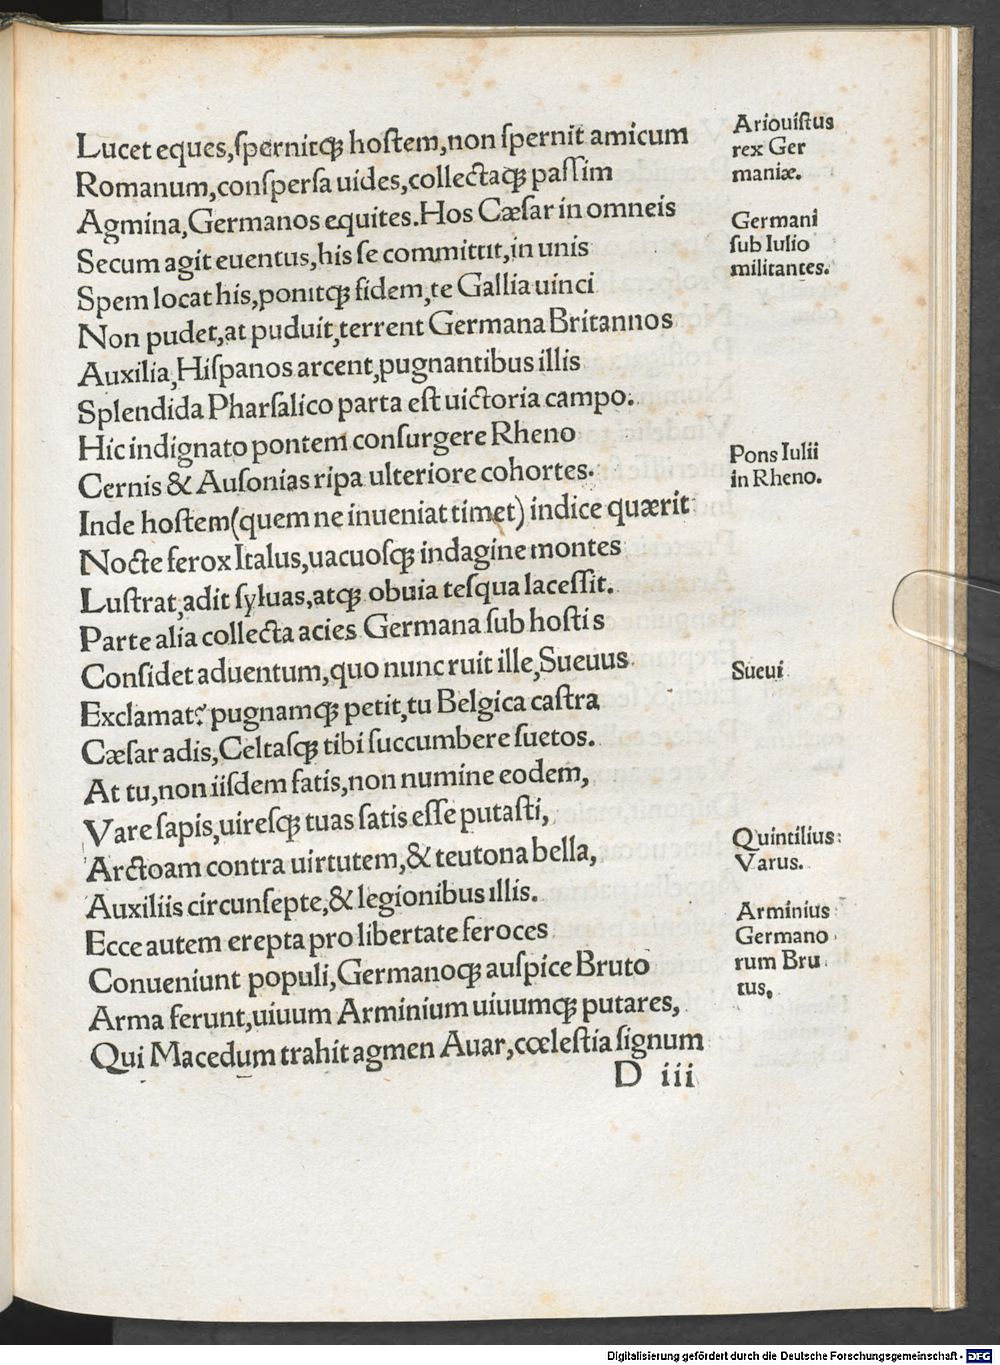 Lucet eques,ſpernitqꝫ hoſtem,non ſpernit amicum
Romanum,conſperſa uides,collectaqꝫ paſſim
Agmina,Germanos equites.Hos Cæſar in omneis
Secum agit euentus,his ſe committit,in unis
Spem locat his,ponitqꝫ fidem,te Gallia uinci
Non pudet,at puduit,terrent Germana Britannos
Auxilia,Hiſpanos arcent,pugnantibus illis
Splendida Pharſalico parta eſt uictoria campo.
Hic indignato pontem conſurgere Rheno
Cernis & Auſonias ripa ulteriore cohortes.
Inde hoſtem(quem ne inueniat timet) indice quærit
Nocte ferox Italus,uacuoſqꝫ indagine montes
Luſtrat,adit ſyluas,atqꝫ obuia teſqua laceſſit.
Parte alia collecta acies Germana ſub hoſtis
Conſidet aduentum,quo nunc ruit ille,Sueuus
Exclamat? pugnamqꝫ petit,tu Belgica caſtra
Cæſar adis,Celtaſqꝫ tibi ſuccumbere ſuetos.
At tu,non iiſdem fatis,non numine eodem,
Vare ſapis,uireſqꝫ tuas ſatis eſſe putaſti,
Arctoam contra uirtutem,& teutona bella,
Auxiliis circunſepte,& legionibus illis.
Ecce autem erepta pro libertate feroces
Conueniunt populi,Germanoqꝫ auſpice Bruto
Arma ferunt,uiuum Arminium uiuumqꝫ putares,
Qui Macedum trahit agmen Auar,cœleſtia ſignum
D iii
Ariouiſtus
rex Ger
maniæ.
Germani
ſub Iulio
militantes.
Pons Iulii
in Rheno.
Sueui
Quintilius
Varus.
Arminius
Germano
rum Bru
tus.
Digitalisierung gefördert durch die Deutsche Forschungsgemeinschaft - DFG